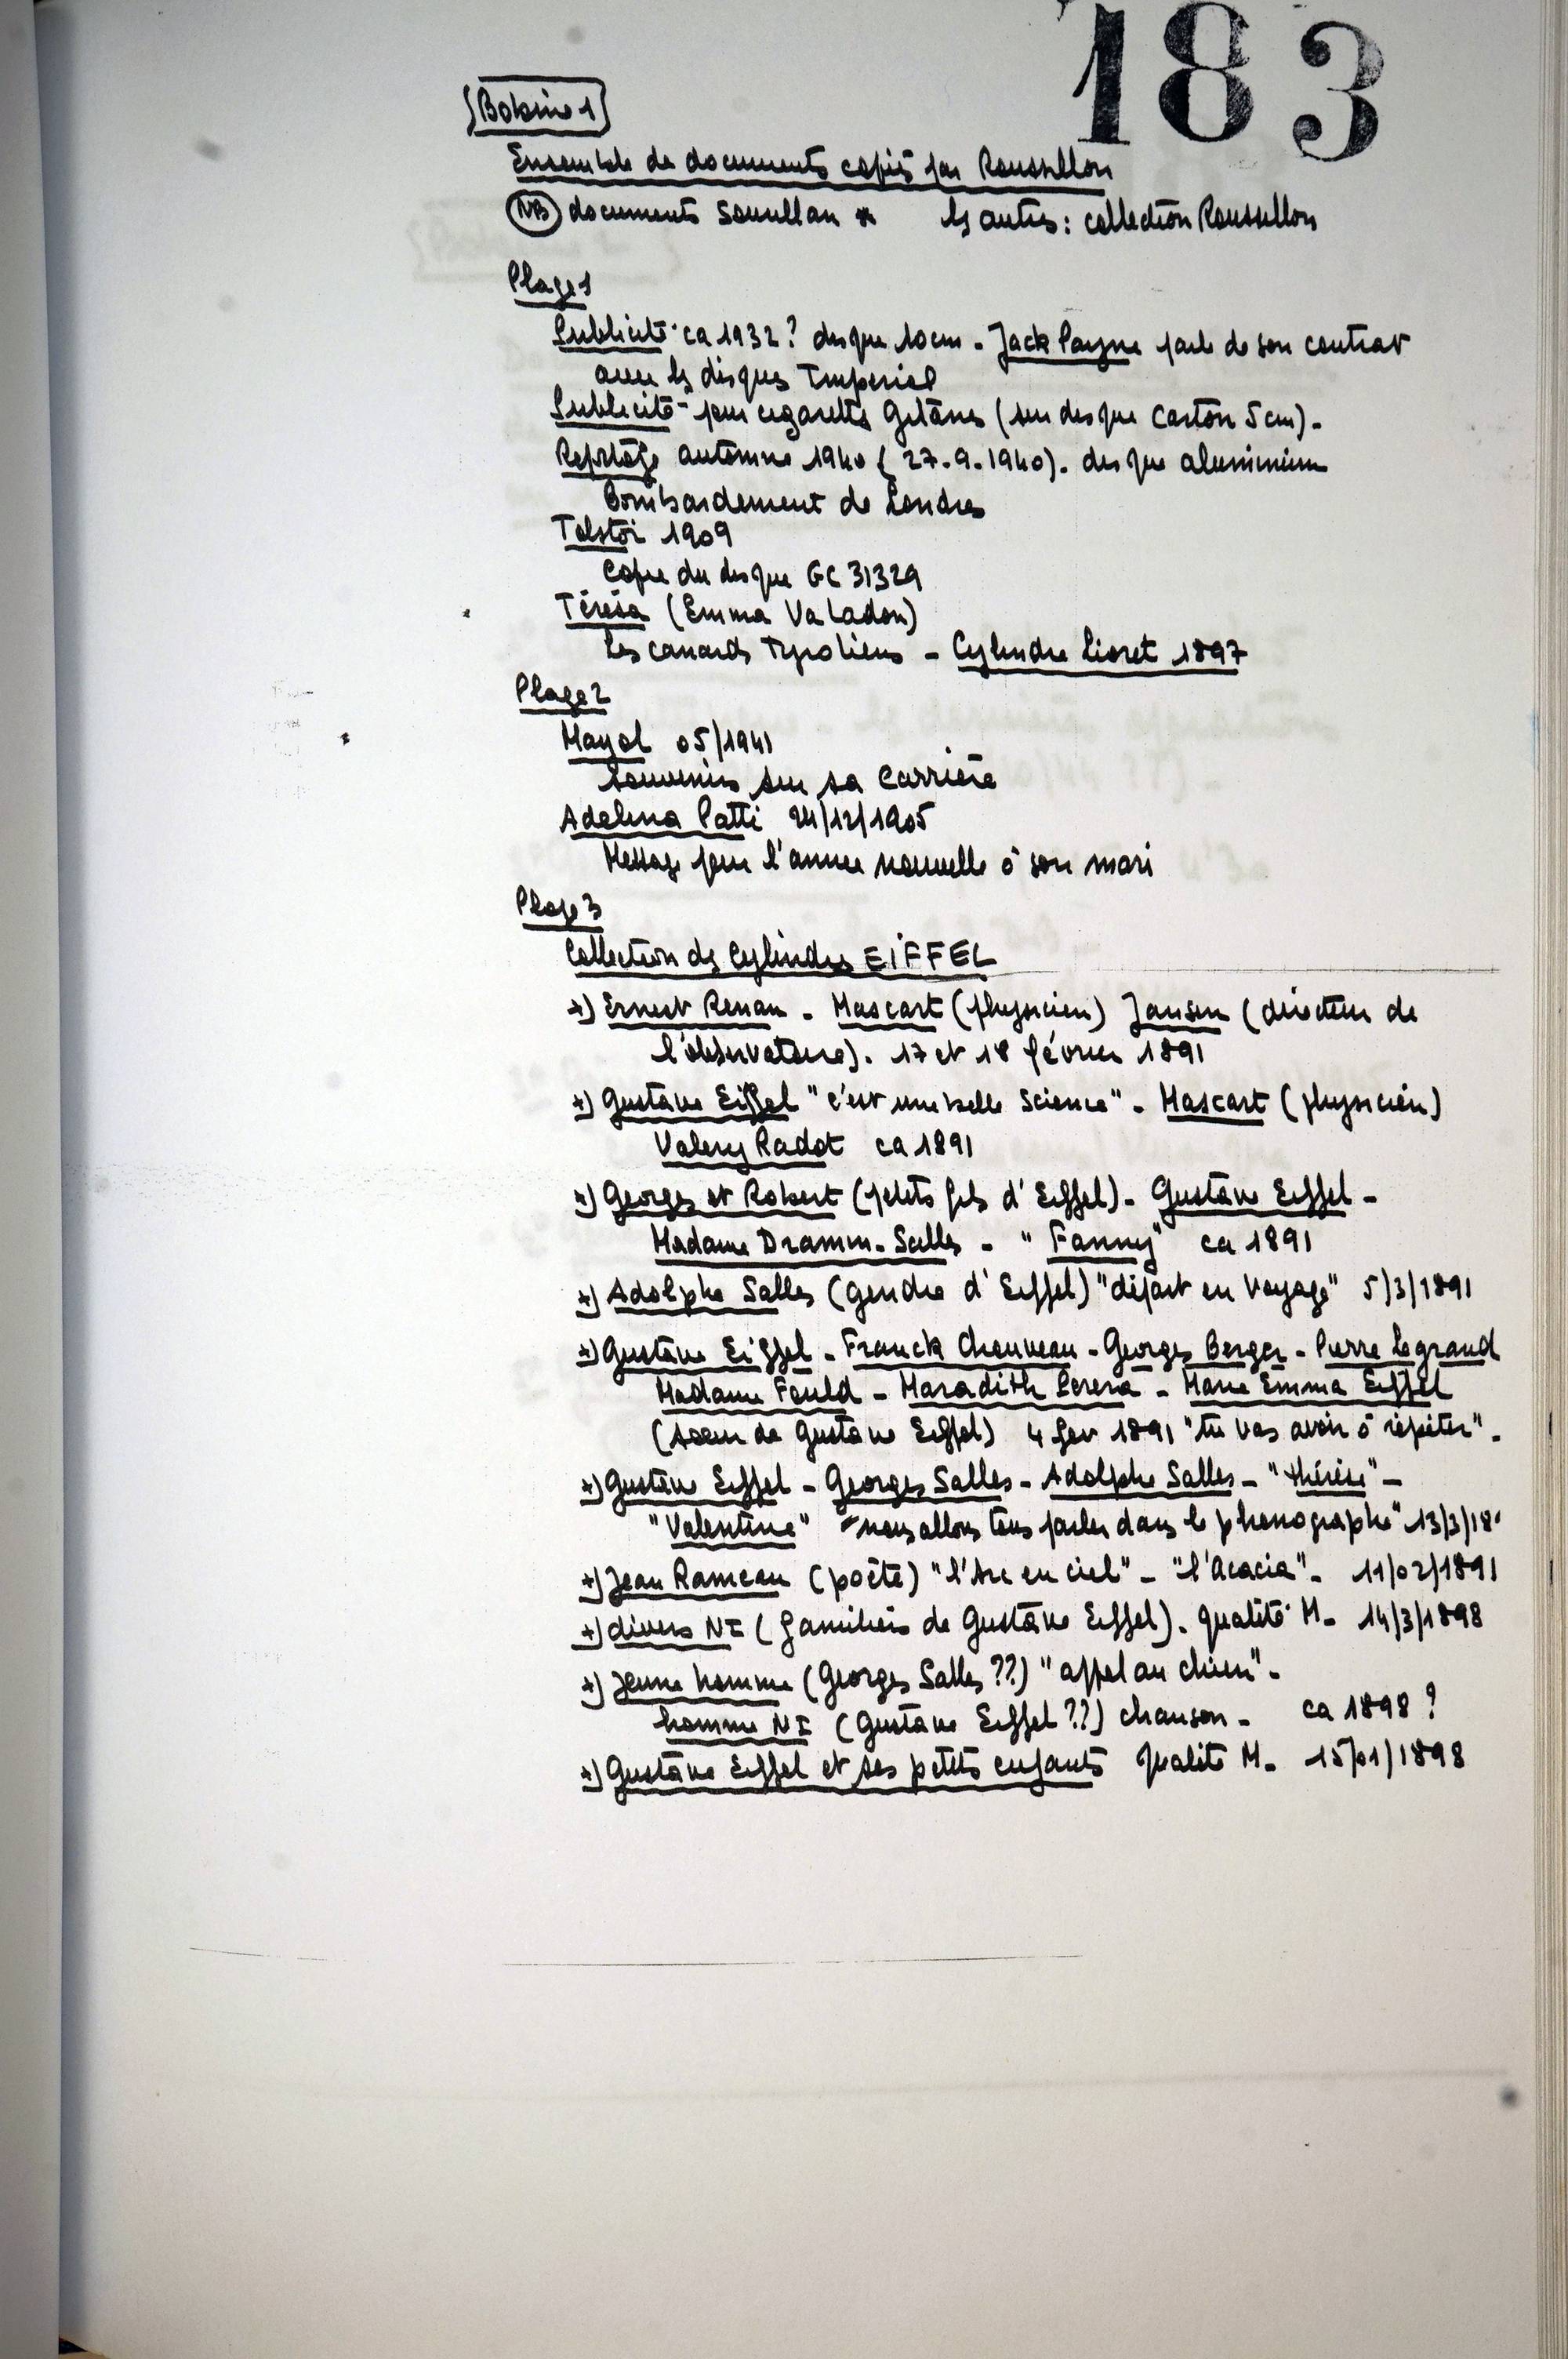 183
Bobine 1
Ensemble de documents copiés par Roussillon
NB documents Sonullan * les autres : collection Roussillon
Plage 1
Publicité ca 1932 ? disque 10cm - Jack Payne parle de son contrat
avec les disques Imperial
Publicité pour cigarettes Gitanes (sur disque carton 5 cm) -
Reportage automne 1940 ( 27.9.1940). disque aluminium
Bombardement de Londres
Tolstoï 1909
Copie du disque GC 31329
Térésa (Emma Valadon)
Les canards Tyroliens - Cylindre Lioret 1897
Plage 2
Mayol 05/1941
Souvenirs sur sa carrière
Adelina Patti 24/12/1905
Message pour l'année nouvelle à son mari
Plage 3
Collection des Cylindres EIFFEL
*) Ernest Renan - Mascart (physicien) Jansen (directeur de
l'observatoire). 17 et 18 février 1891
*) Gustave Eiffel "c'est une belle Science" - Mascart (physicien)
Valery Radot ca 1891
*) Georges et Robert (petits fils d'Eiffel) - Gustave Eiffel -
Madame Dramm-Salles - "Fanny" ca 1891
*) Adolphe Salles (gendre d'Eiffel) "départ en voyage" 5/3/1891
*) Gustave Eiffel - Franck Chauveau - Georges Berger - Pierre Legrand
Madame Fould - Maradith Perera - Marie Emma Eiffel
(soeur de Gustave Eiffel) 4 fev 1891 "tu vas avoir à répéter" -
*) Gustave Eiffel - Georges Salles - Adolphe Salles - "thérèse" -
"Valentine" "nous allons tous parler dans le phonographe" 13/3/18
*) Jean Rameau (poète) "l'Arc en ciel" - "l'Acacia" - 11/02/1891
*) divers NI (familiers de Gustave Eiffel). qualité M - 14/3/1898
*) Jeune homme (Georges Salles ??) "appel au chien" -
homme NI (Gustave Eiffel ??) chanson - ca 1898 ?
*) Gustave Eiffel et ses petits enfants qualité M - 15/01/1898